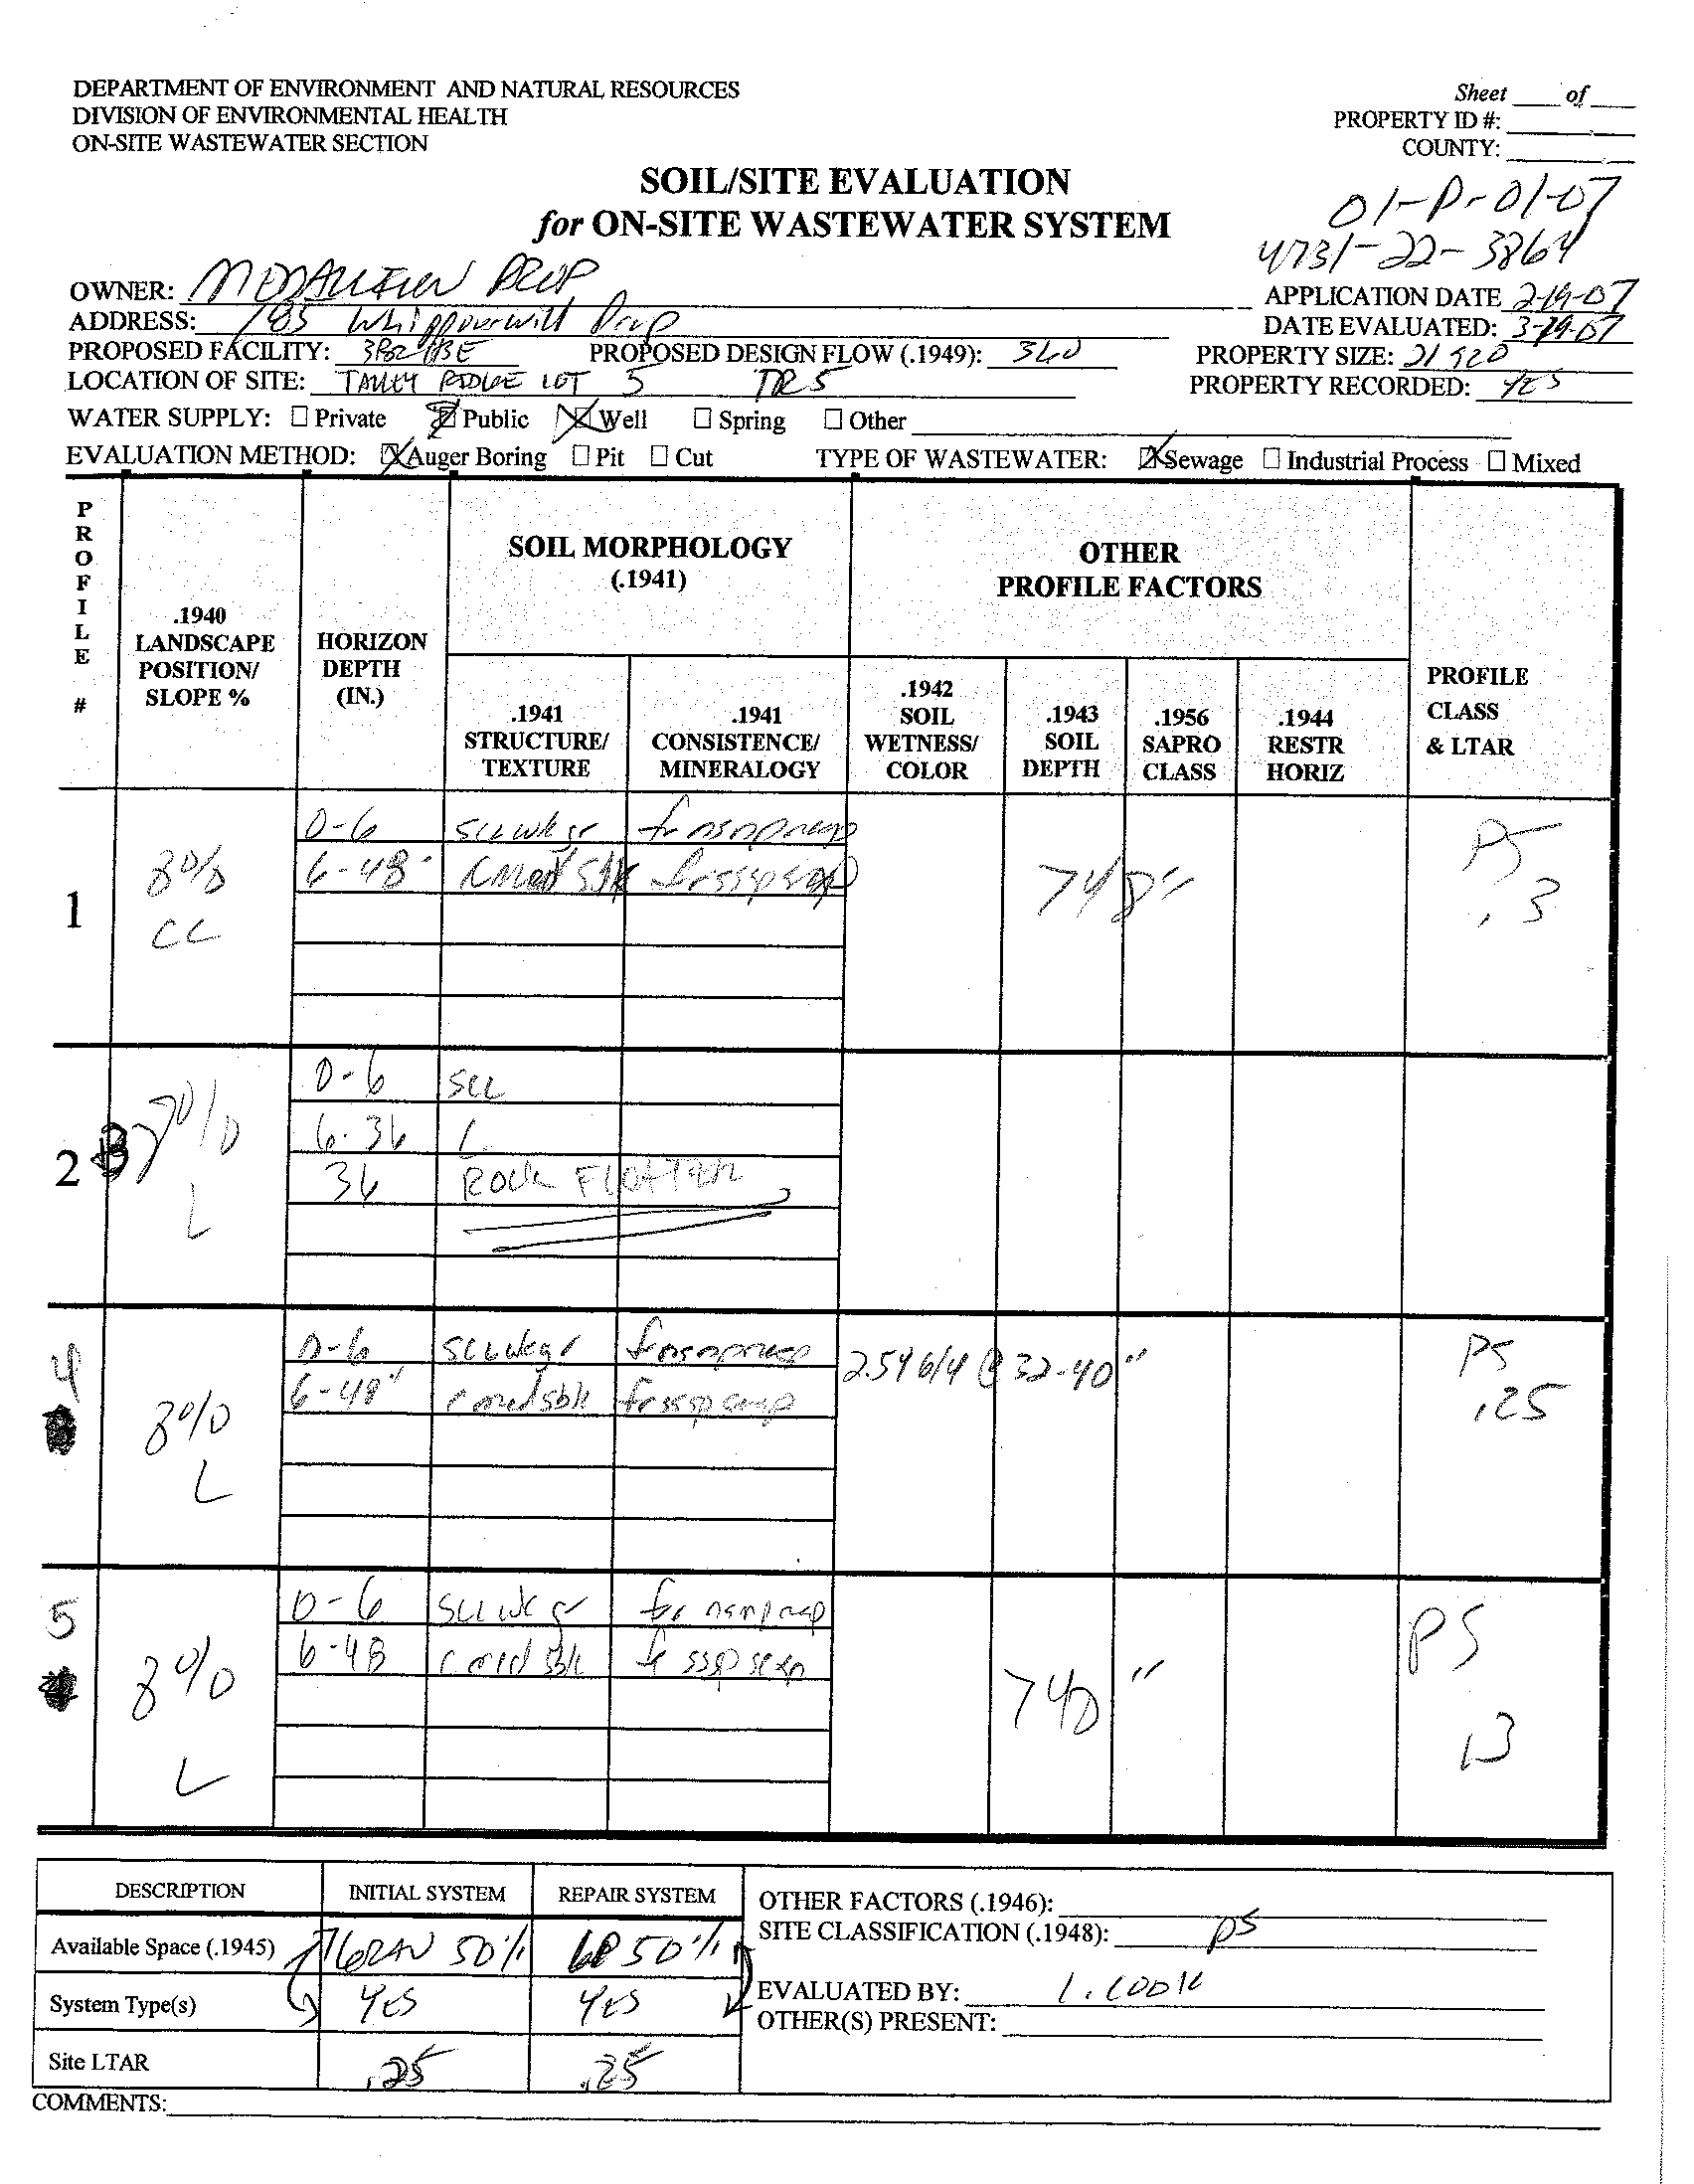 DEPARTMENT OF ENVIRONMENT AND NATURAL RESOURCES
DIVISION OF ENVIRONMENTAL HEALTH
ON-SITE WASTEWATER SECTION
Sheet ____ of ____
PROPERTY ID #:
COUNTY:
SOIL/SITE EVALUATION
for ON-SITE WASTEWATER SYSTEM
01-P-01-07
4731-22-3864
OWNER: PROP
ADDRESS: 785 Whippoorwill Drop
PROPOSED FACILITY: PROPOSED DESIGN FLOW (.1949): 360
LOCATION OF SITE: RIDGE LOT 5 TR5
APPLICATION DATE 2-19-07
DATE EVALUATED: 3-29-07
PROPERTY SIZE: 21 920
PROPERTY RECORDED: YES
WATER SUPPLY: ☐ Private ☒ Public ☒ Well ☐ Spring ☐ Other
EVALUATION METHOD: ☒ Auger Boring ☐ Pit ☐ Cut TYPE OF WASTEWATER: ☒ Sewage ☐ Industrial Process ☐ Mixed
PROFILE #
.1940 LANDSCAPE POSITION/ SLOPE %
HORIZON DEPTH (IN.)
SOIL MORPHOLOGY
(.1941)
.1941 STRUCTURE/ TEXTURE
.1941 CONSISTENCE/ MINERALOGY
OTHER
PROFILE FACTORS
.1942 SOIL WETNESS/ COLOR
.1943 SOIL DEPTH
.1956 SAPRO CLASS
.1944 RESTR HORIZ
PROFILE CLASS & LTAR
1
8%
CC
0-6 SCL wk gr fr nsnp nexp
6-48" C mod sbk fr sssp sexp
>48"
PS
.3
2
L
0-6 SCL
6-36 C
36 ROCK FLOATER
4
8%
L
0-6 SCL wk gr fr nsnp nexp
6-48" C mod sbk fr sssp sexp
2.5Y 6/4 @ 32-40"
PS
.25
5
8%
L
0-6 SCL wk gr fr nsnp nexp
6-48 C mod sbk fr sssp sexp
>48"
PS
.3
DESCRIPTION INITIAL SYSTEM REPAIR SYSTEM
Available Space (.1945) GRAV 50% 50%
System Type(s) YES YES
Site LTAR .25 .25
OTHER FACTORS (.1946):
SITE CLASSIFICATION (.1948): PS
EVALUATED BY: L. COOK
OTHER(S) PRESENT:
COMMENTS: